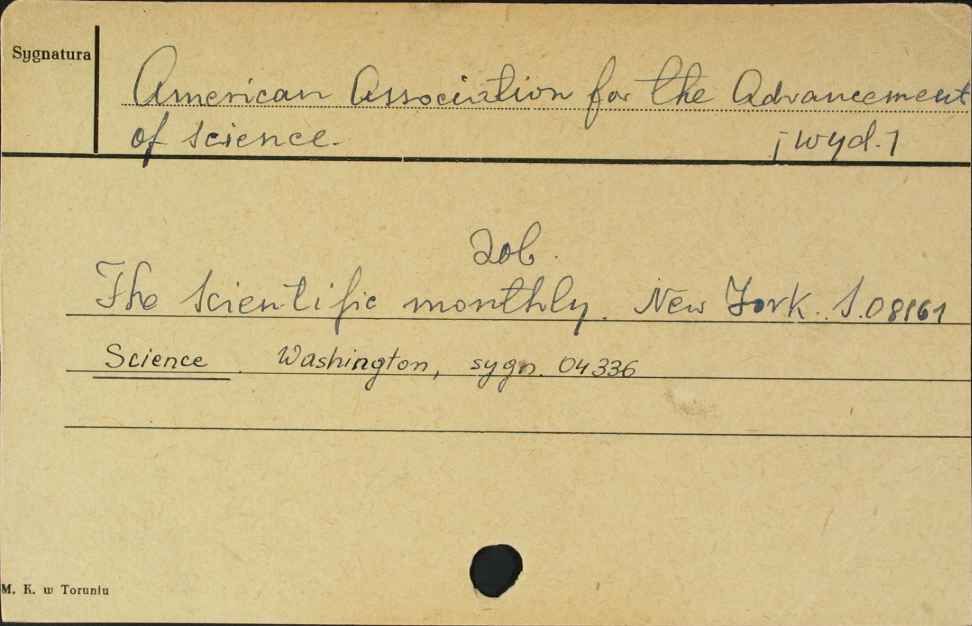 Sygnatura
American Association for the Advancement
of Science. [wyd.]
Zob.
The Scientific monthly. New York. S.08161
Science. Washington, sygn. 04336
M. K. w Toruniu